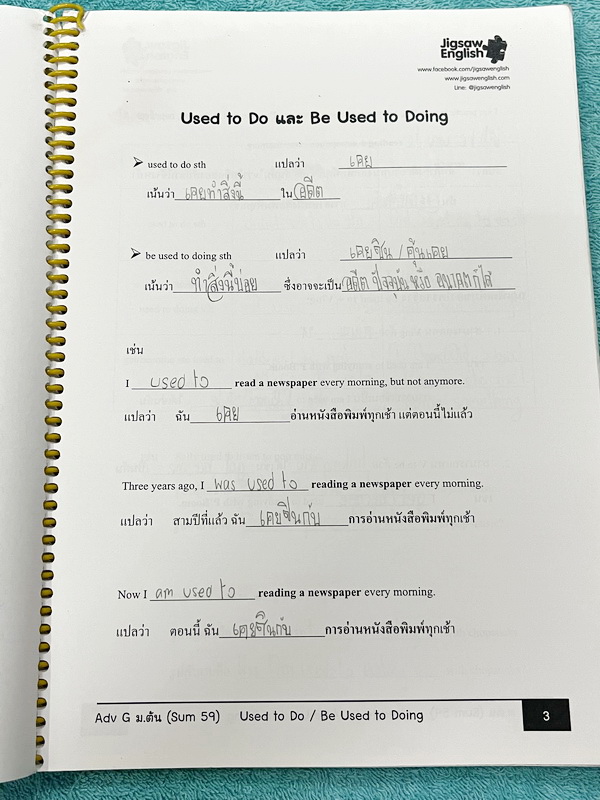 Jigsaw
English
www.facebook.com/jigsawenglish
www.jigsawenglish.com
Line: @jigsawenglish
Used to Do และ Be Used to Doing
➤ used to do sth แปลว่า เคย
เน้นว่า เคยทำสิ่งนี้ ใน อดีต
➤ be used to doing sth แปลว่า เคยชิน / คุ้นเคย
เน้นว่า ทำสิ่งนี้บ่อย ซึ่งอาจจะเป็น อดีต ปัจจุบัน หรือ อนาคตก็ได้
เช่น
I used to read a newspaper every morning, but not anymore.
แปลว่า ฉัน เคย อ่านหนังสือพิมพ์ทุกเช้า แต่ตอนนี้ไม่แล้ว
Three years ago, I was used to reading a newspaper every morning.
แปลว่า สามปีที่แล้ว ฉัน เคยชินกับ การอ่านหนังสือพิมพ์ทุกเช้า
Now I am used to reading a newspaper every morning.
แปลว่า ตอนนี้ ฉัน เคยชินกับ การอ่านหนังสือพิมพ์ทุกเช้า
Adv G ม.ต้น (Sum 59) Used to Do / Be Used to Doing 3